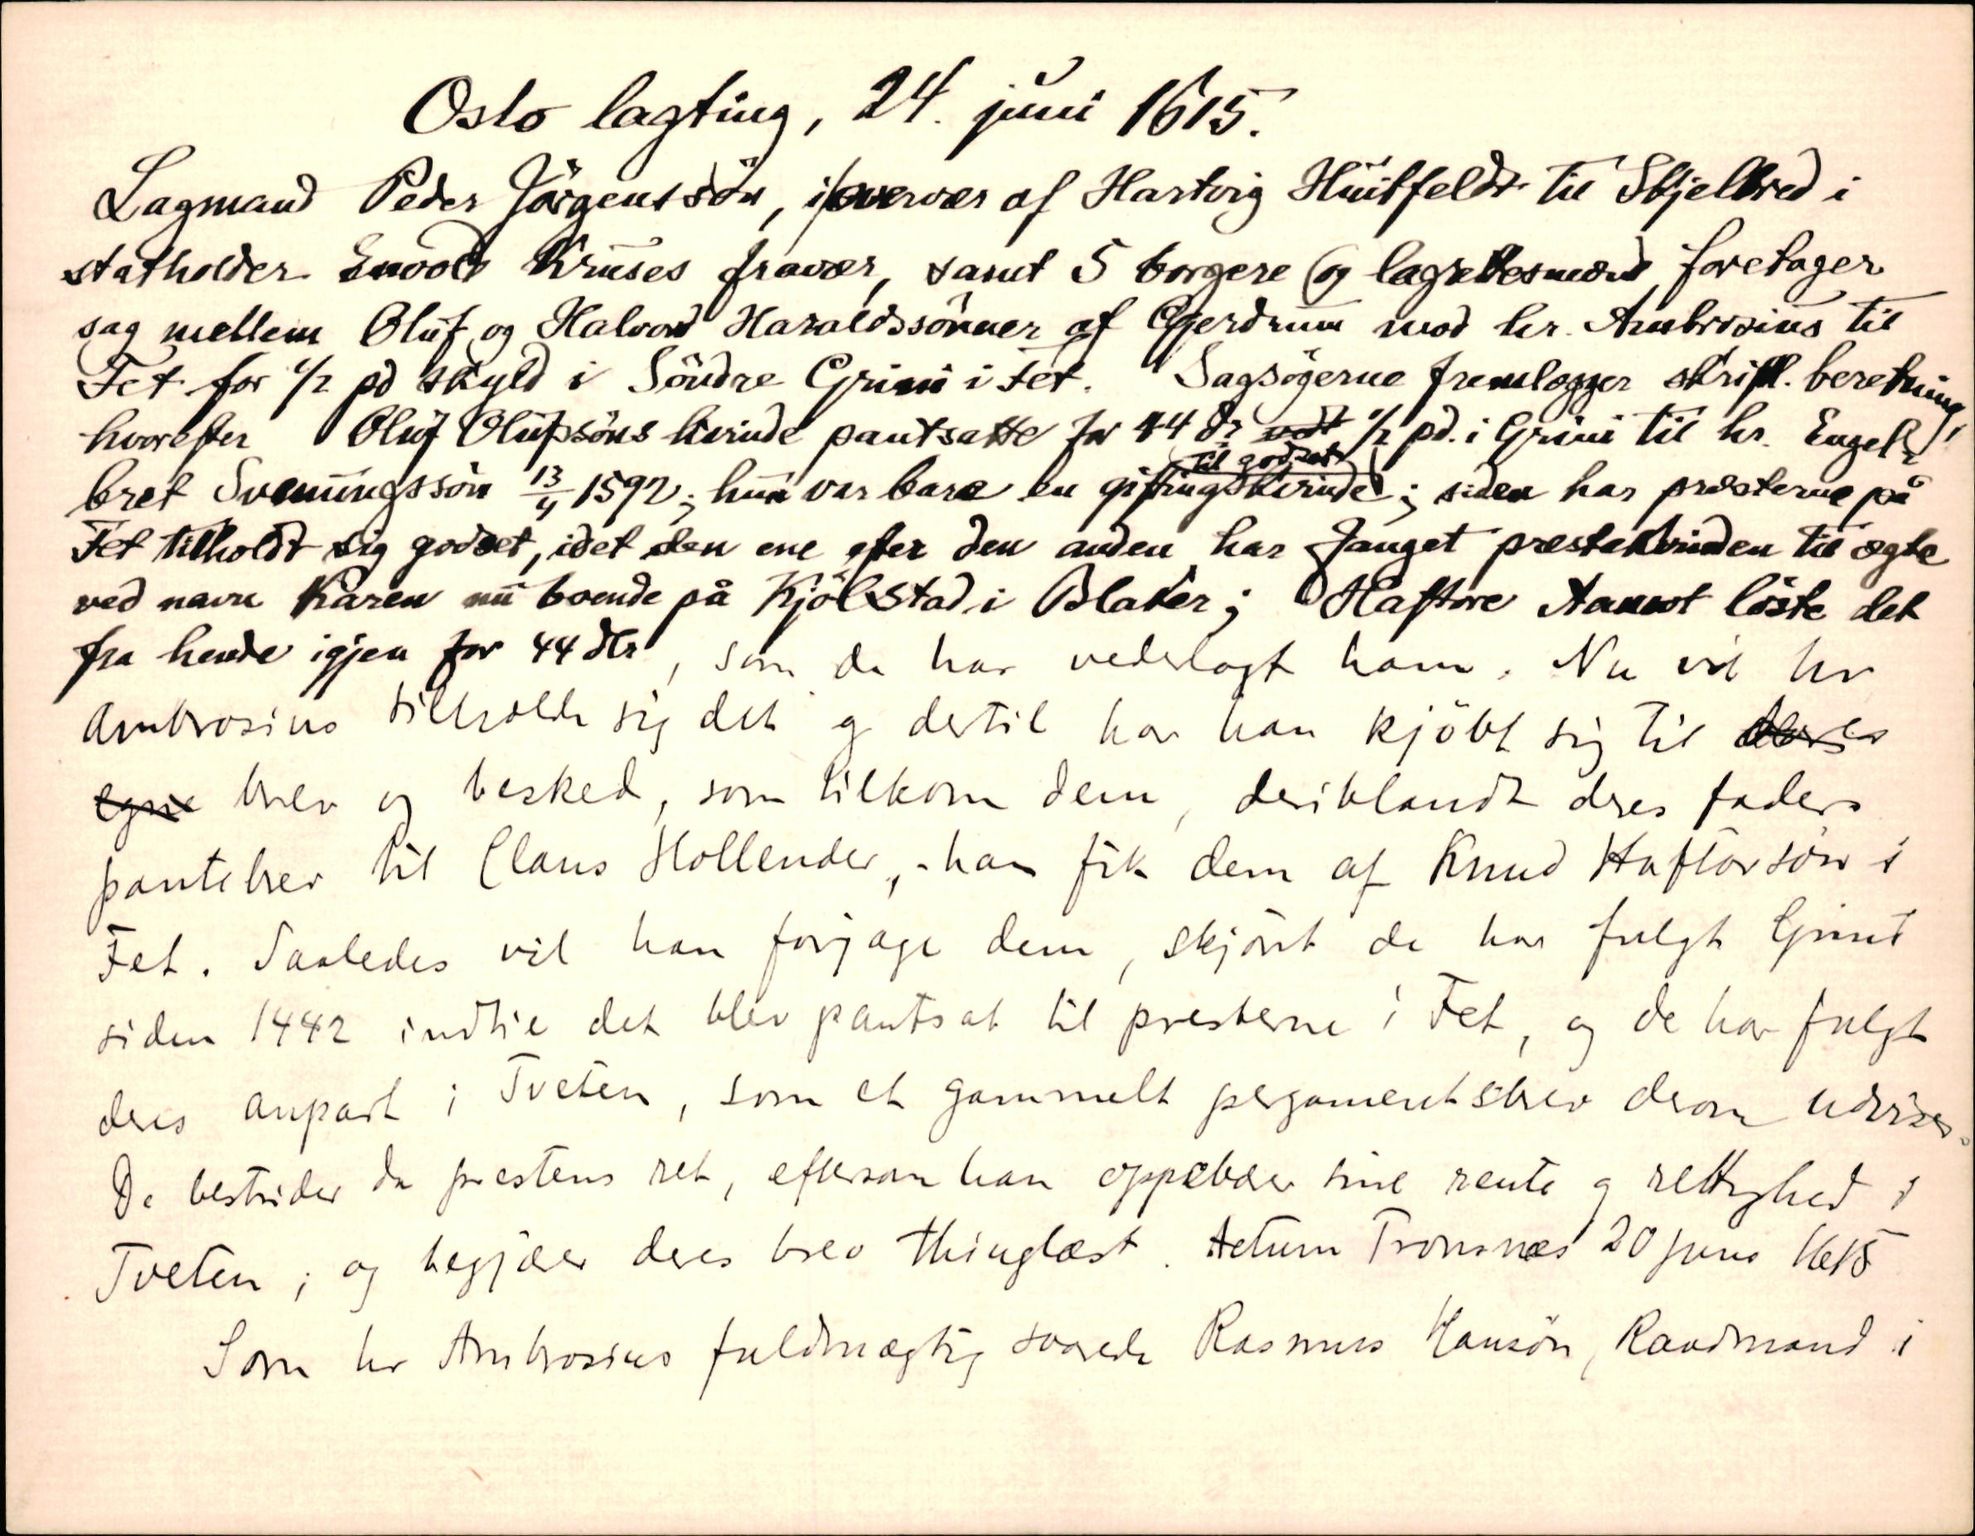 Oslo lagting, 24. juni 1615.
Lagmand Peder Jörgenssön, i overvær af Hartvig Huitfeldt til Skjelbred i
statholder Envold Kruses fravær, samt 5 borgere og lagrettesmænd, foretager
sag mellem Oluf og Halvord Haraldssönner af Gjerdrum mod hr. Ambrosius til
Fet for 1/2 pd skyld i Söndre Grini i Fet. Sagsögerne fremlægger skriftl. beretning,
hvorefter Oluf Olufssöns kvinde pantsatte for 44 dr 1/2 pd. i Grini til hr. Engel-
bret Svenungssön 13/4 1592; hun var bare en giftingskvinde til godset; siden har præsterne på
Fet tilholdt sig godset, idet den ene efter den anden har fanget prestekvinden til ægte
ved navn Karen nu boende på Kjölstad i Blaker; Haftore Aamot löste det
fra hende igjen for 44 dlr, som de har vederlagt ham. Nu vil hr
Ambrosius tilholde sig det og dertil har han kjöbt sig til deres
egne brev og besked, som tilkom dem, deriblandt deres faders
pantebrev til Claus Hollender, - han fik dem af Knud Haftorsön i
Fet. Saaledes vil han forjage dem, skjönt de har fulgt Grini
siden 1442 indtil det blev pantsat til presterne i Fet, og de har fulgt
deres anpart i Tveten, som et gammelt pergamentsbrev derom udviser.
De bestrider da prestens ret, eftersom han oppebær sine rente og rettighed i
Tveten; og begjærer deres brev thinglæst. Actum Tronsnæs 20 juni 1615
Som hr Ambrosius fuldmægtig svarede Rasmus Hansön, Raadmand i